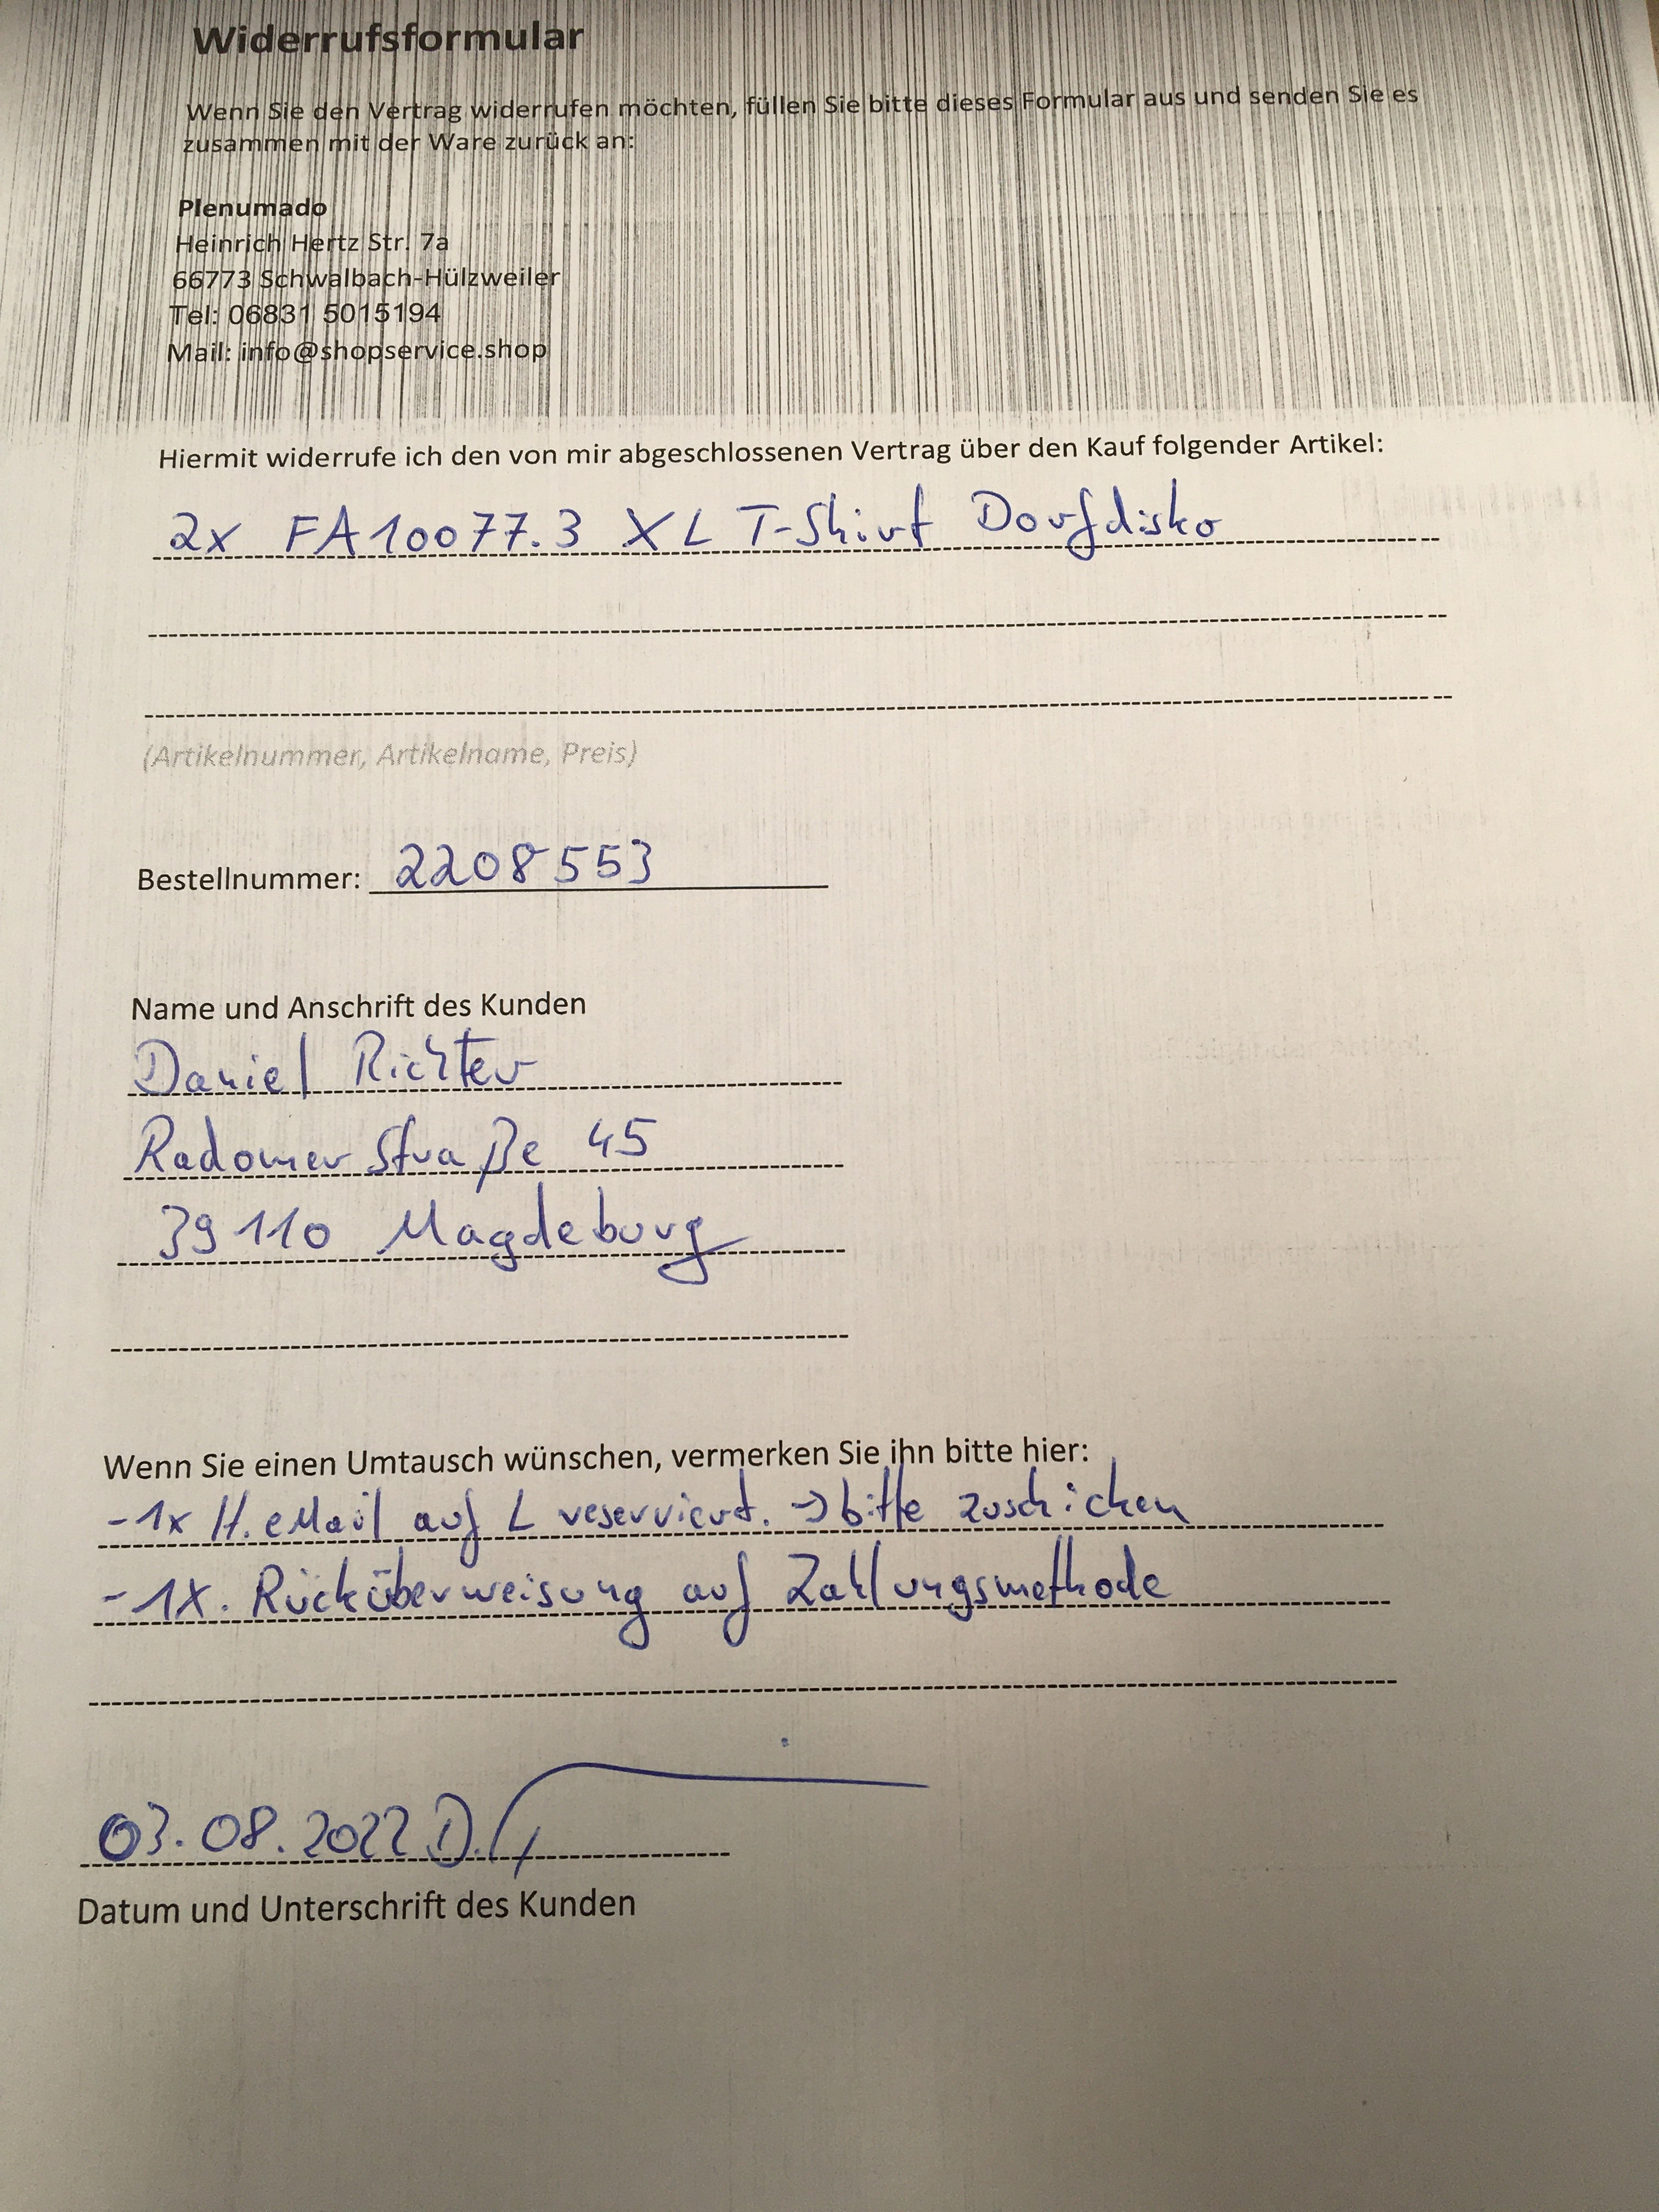 Widerrufsformular
Wenn Sie den Vertrag widerrufen möchten, füllen Sie bitte dieses Formular aus und senden Sie es
zusammen mit der Ware zurück an:
Plenumado
Heinrich Hertz Str. 7a
66773 Schwalbach-Hülzweiler
Tel: 06831 5015194
Mail: info@shopservice.shop
Hiermit widerrufe ich den von mir abgeschlossenen Vertrag über den Kauf folgender Artikel:
2x FA10077.3 XL T-Shirt Dorfdisko
(Artikelnummer, Artikelname, Preis)
Bestellnummer: 2208553
Name und Anschrift des Kunden
Daniel Richter
Radomer Straße 45
39110 Magdeburg
Wenn Sie einen Umtausch wünschen, vermerken Sie ihn bitte hier:
- 1x lt. eMail auf L reserviert. → bitte zuschicken
- 1x. Rücküberweisung auf Zahlungsmethode
03.08.2022 D.
Datum und Unterschrift des Kunden